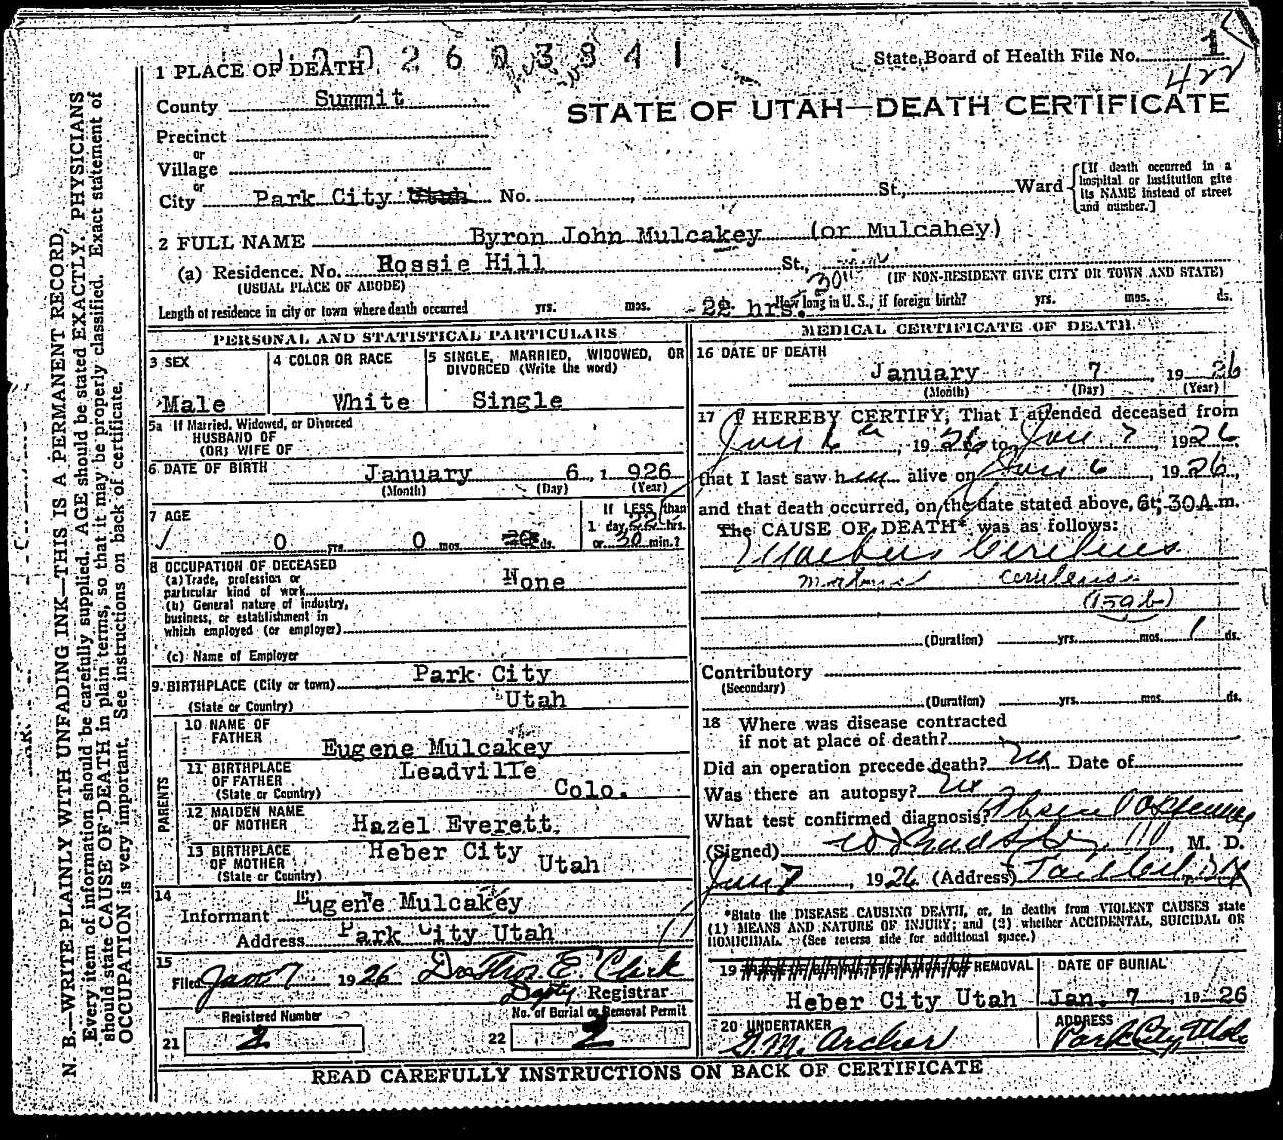 State Board of Health File No. 1
422
1 PLACE OF DEATH
County Summit
STATE OF UTAH—DEATH CERTIFICATE
Precinct
or
Village
or
City Park City Utah No. St., Ward
[If death occurred in a
hospital or institution give
its NAME instead of street
and number.]
2 FULL NAME Byron John Mulcakey (or Mulcahey)
(a) Residence. No. Rossie Hill St.,
(USUAL PLACE OF ABODE) (IF NON-RESIDENT GIVE CITY OR TOWN AND STATE)
Length of residence in city or town where death occurred yrs. mos. 22 hrs. 30" How long in U. S., if foreign birth? yrs. mos. ds.
PERSONAL AND STATISTICAL PARTICULARS
3 SEX
Male
4 COLOR OR RACE
White
5 SINGLE, MARRIED, WIDOWED, OR
DIVORCED (Write the word)
Single
5a If Married, Widowed, or Divorced
HUSBAND OF
(OR) WIFE OF
6 DATE OF BIRTH January 6, 1926
(Month) (Day) (Year)
7 AGE
0 yrs. 0 mos. ds.
If LESS than
1 day, 22 hrs.
or 30 min.?
8 OCCUPATION OF DECEASED
(a) Trade, profession or
particular kind of work None
(b) General nature of industry,
business, or establishment in
which employed (or employer)
(c) Name of Employer
9. BIRTHPLACE (City or town) Park City
(State or Country) Utah
PARENTS
10 NAME OF
FATHER
Eugene Mulcakey
11 BIRTHPLACE
OF FATHER
(State or Country)
Leadville
Colo.
12 MAIDEN NAME
OF MOTHER Hazel Everett
13 BIRTHPLACE
OF MOTHER
(State or Country)
Heber City
Utah
14
Informant Eugene Mulcakey
Address Park City Utah
15
Filed Jan 7 1926 Dr Thos E. Clark
Depty Registrar
Registered Number
21 2
No. of Burial or Removal Permit
22 2
MEDICAL CERTIFICATE OF DEATH
16 DATE OF DEATH
January 7, 1926
(Month) (Day) (Year)
17 I HEREBY CERTIFY, That I attended deceased from
Jan 6th, 1926 to Jan 7 1926
that I last saw him alive on Jan 6, 1926,
and that death occurred, on the date stated above, 6:30 A.m.
The CAUSE OF DEATH* was as follows:
Morbus Ceruleus
morbus ceruleus
(159b)
(Duration) yrs. mos. 1 ds.
Contributory
(Secondary)
(Duration) yrs. mos. ds.
18 Where was disease contracted
if not at place of death?
Did an operation precede death? No Date of
Was there an autopsy? No
What test confirmed diagnosis?
(Signed) M. D.
Jan 7, 1926 (Address)
*State the DISEASE CAUSING DEATH, or, in deaths from VIOLENT CAUSES state
(1) MEANS AND NATURE OF INJURY; and (2) whether ACCIDENTAL, SUICIDAL OR
HOMICIDAL. (See reverse side for additional space.)
19 REMOVAL
Heber City Utah
DATE OF BURIAL
Jan. 7, 1926
20 UNDERTAKER
G.M. Archer
ADDRESS
Park City Utah
READ CAREFULLY INSTRUCTIONS ON BACK OF CERTIFICATE
N. B.—WRITE PLAINLY WITH UNFADING INK—THIS IS A PERMANENT RECORD.
Every item of information should be carefully supplied. AGE should be stated EXACTLY. PHYSICIANS
should state CAUSE OF DEATH in plain terms, so that it may be properly classified. Exact statement of
OCCUPATION is very important. See instructions on back of certificate.